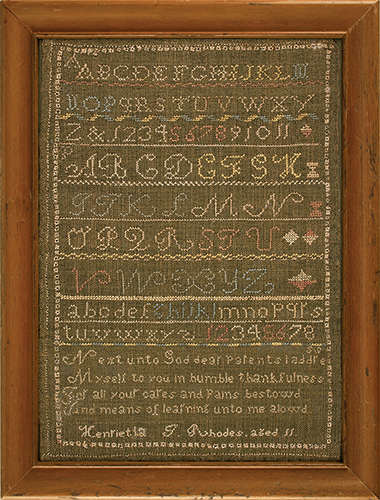 A ABCDEFGHIJKLM
NOPQRSTUVWXY
Z & 1234567891011
ABCDEFSK
IJKLMN
OPQRSTU
VWXYZ
abcdefghijklmnopqrs
tuvwxyz 12345678
Next unto God dear Parents I addre
Myself to you in humble thankfulness
For all your cares and Pains bestowd
And means of learning unto me alowd
Henrietta J. Rhodes, aged 11